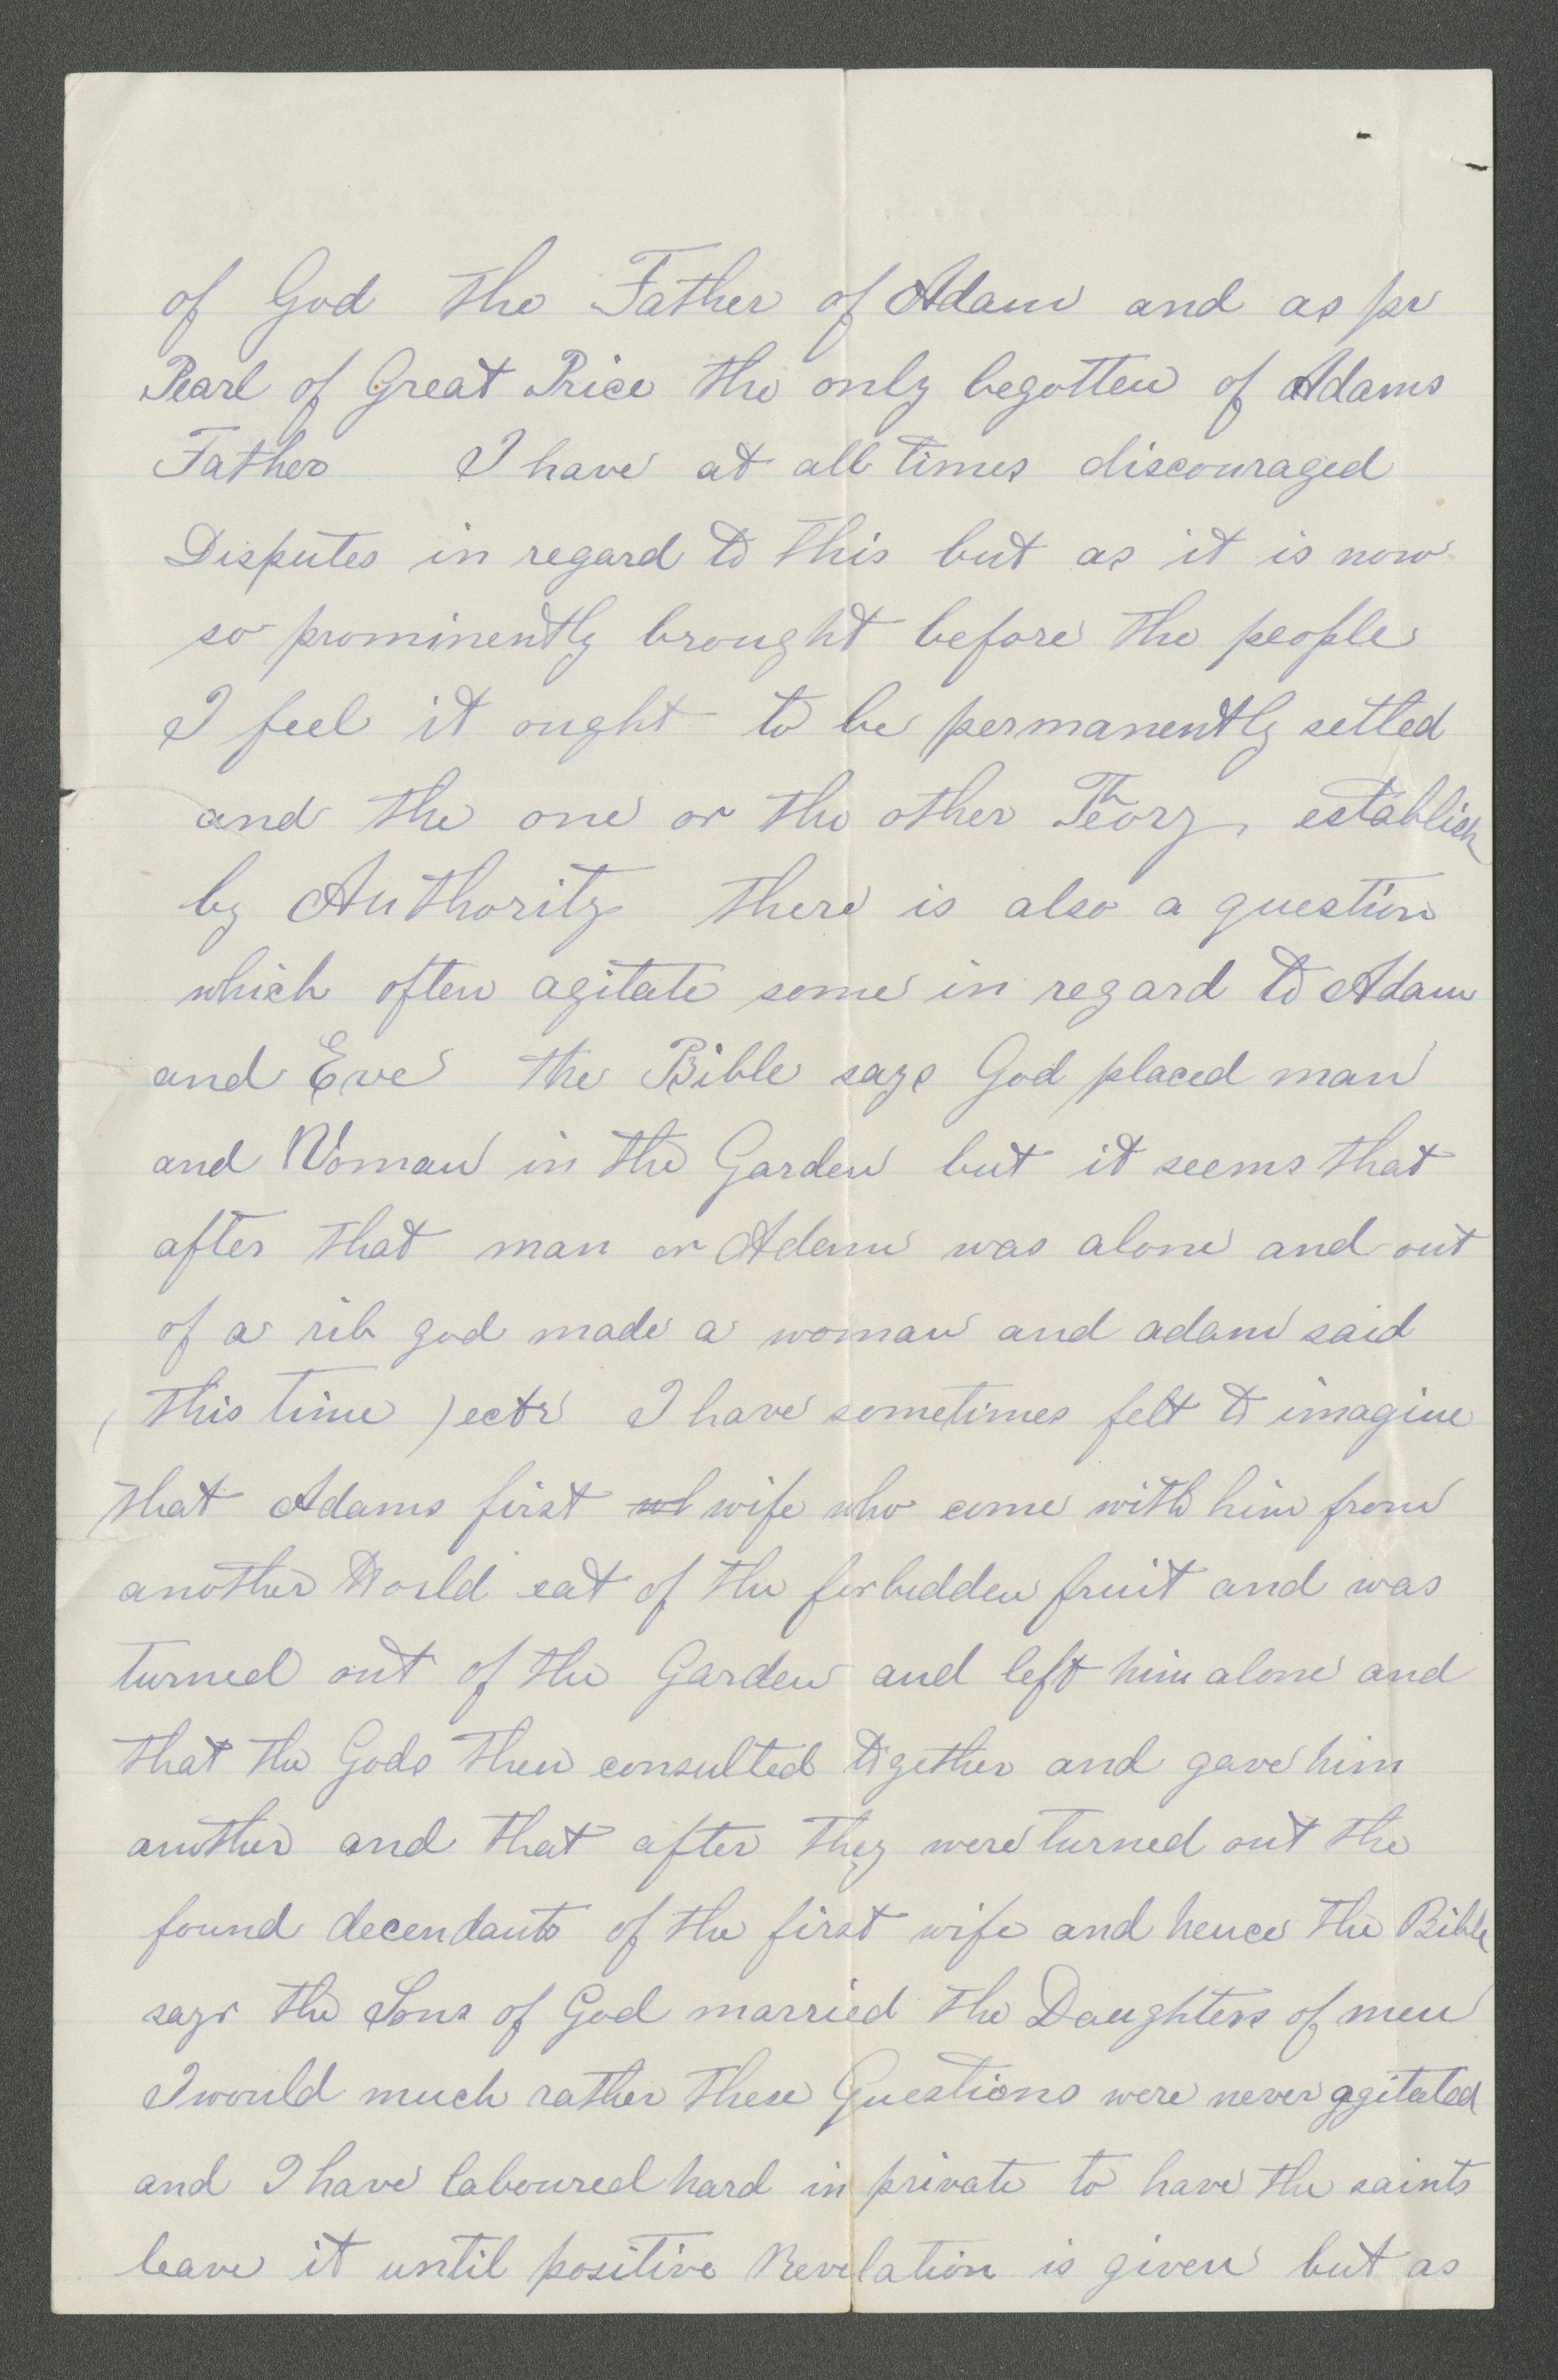 of God the Father of Adam and as pr
Pearl of Great Price the only begotten of Adams
Father I have at all times discouraged
Disputes in regard to this but as it is now
so prominently brought before the people
I feel it ought to be permanently setled
and the one or the other Theory establish
by Authority there is also a question
which often agitate some in regard to Adam
and Eve the Bible says God placed man
and Woman in the Garden but it seems that
after that man or Adam was alone and out
of a rib god made a woman and adam said
( this time ) ectr I have sometimes felt to imagine
that Adams first wife who come with him from
another World eat of the forbidden fruit and was
turned out of the Garden and left him alone and
that the Gods then consulted together and gave him
another and that after they were turned out the
found decendants of the first wife and hence the Bible
says the Sons of God married the Daughters of men
I would much rather these Questions were never agitated
and I have laboured hard in private to have the saints
leave it until positive Revelation is given but as